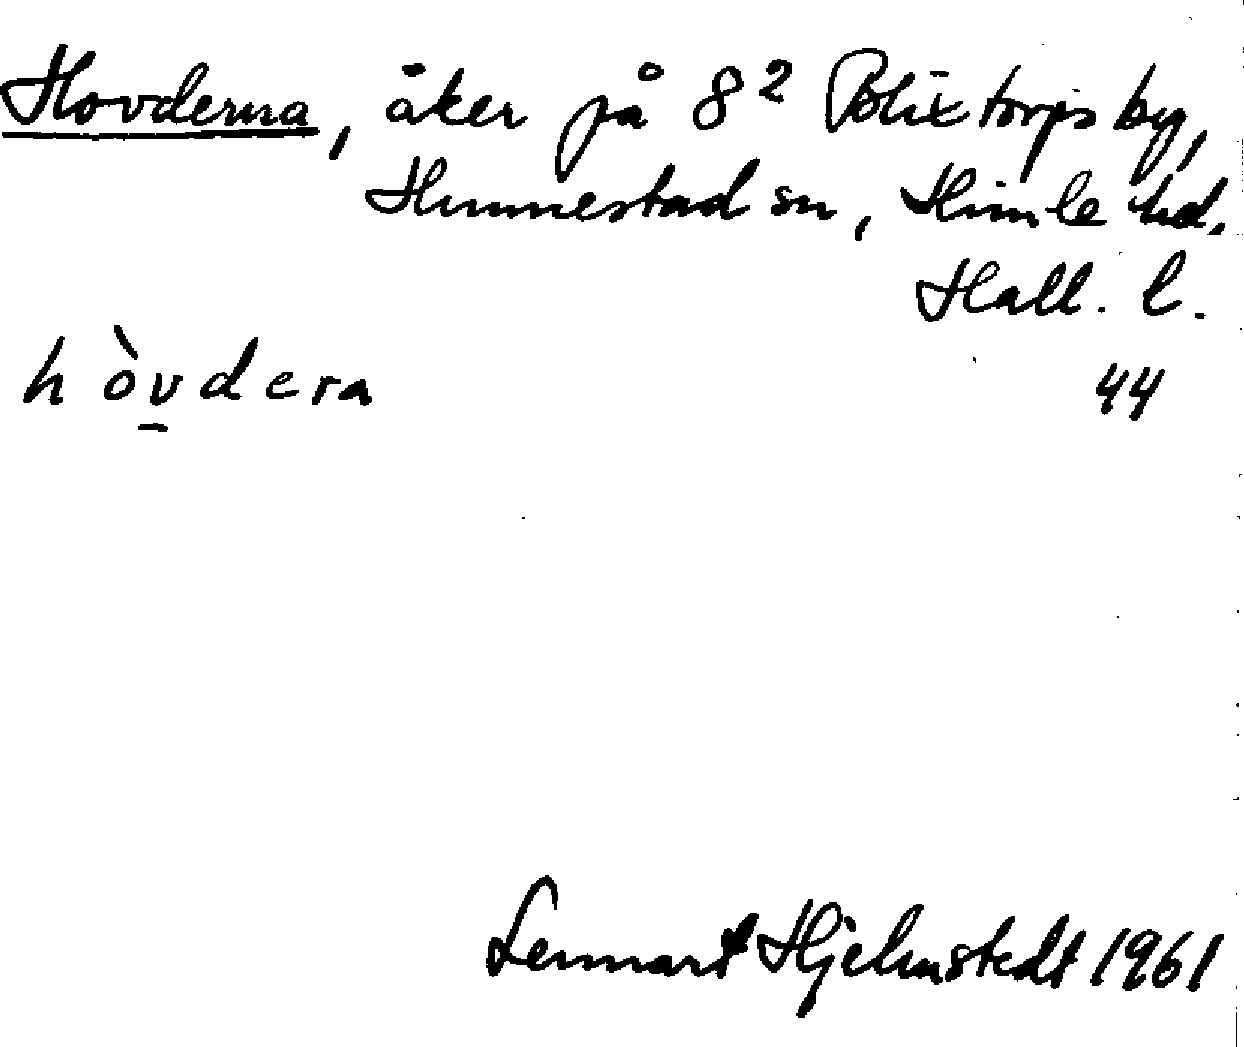 Hovderna, åker på 8² Blixtorps by,
Hunnestad sn, Himle hd.
Hall. l.
hòv̠dera 44
Lennart Hjelmstedt 1961